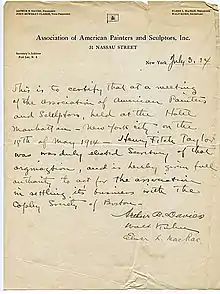 ARTHUR B. DAVIES, President
Association of American Painters and Sculptors, Inc.
31 NASSAU STREET
New York, July 3. 14
This is to certify that at a meeting
of the association of American Painters
and Sculptors, held at the Hotel
Manhattan - New York city - on the
18th of May, 1914 - Henry Fitch Taylor
was duly elected Secretary of that
organization, and is hereby given full
authority to act for the association
in settling its business with the
Copley Society of Boston -
Arthur B. Davies
Walt Kuhn
Elmer L. MacRae